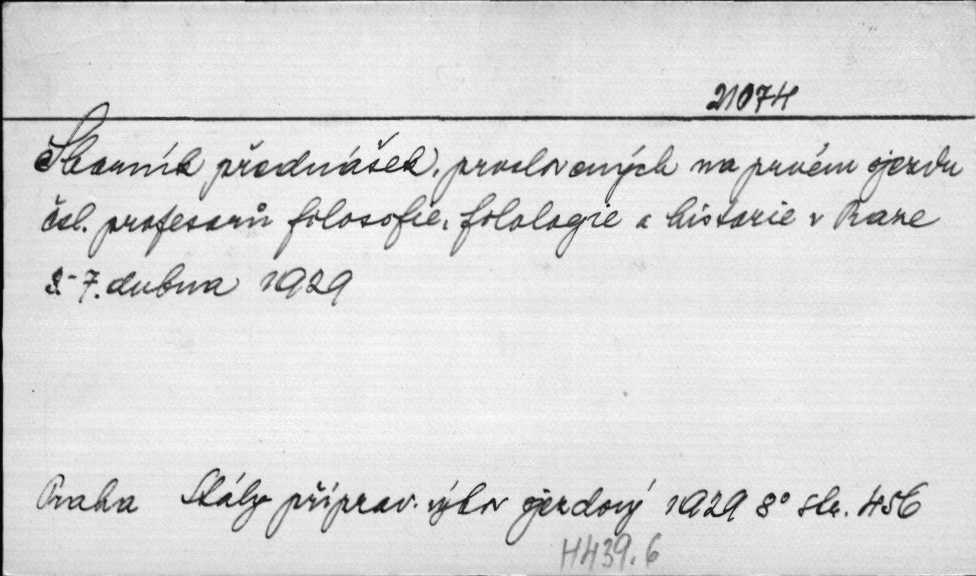 21074
Sborník přednášek, proslovených na prvém sjezdu
čsl. profesorů filosofie, filologie a historie v Praze
3.-7. dubna 1929
Praha Stálý příprav. výbor sjezdový 1929 8° str. 456
H439.6